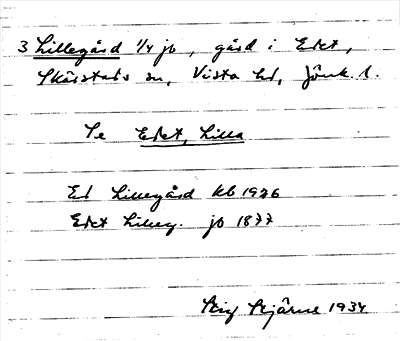 3 Lillegård 1/4 jb, gård i Edet,
Skärstads sn, Vista hd, Jönk. l.
Se Edet, Lilla
Ed Lillegård kb 1926
Edet Lilleg. jb 1877
Stig Stjärne 1934